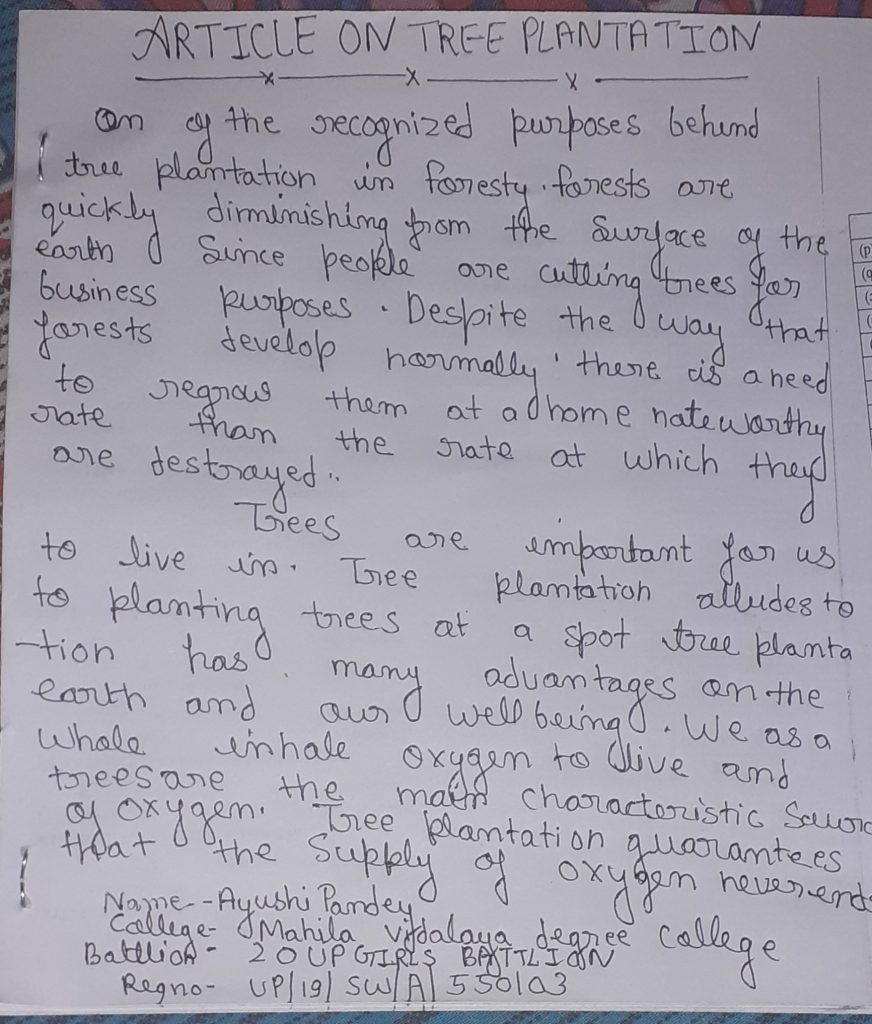 ARTICLE ON TREE PLANTATION
on of the recognized purposes behind
tree plantation in foresty. forests are
quickly dirminishing from the surface of the
earth Since people are cutting trees for
business purposes. Despite the way that
forests develop normally, there is a need
to regrow them at a home noteworthy
rate than the rate at which they
are destroyed..
Trees are important for us
to live in. Tree plantation alludes to
to planting trees at a spot tree planta
-tion has many advantages on the
earth and our wellbeing. We as a
Whole inhale oxygen to live and
trees are the main characteristic Sourc
of oxygen. Tree plantation guarantees
that the supply of oxygen never ends
Name - Ayushi Pandey
College - Mahila Vidalaya degree college
Battlion - 20 UP GIRLS BATTLION
Regno - UP/19/SW/A/550103